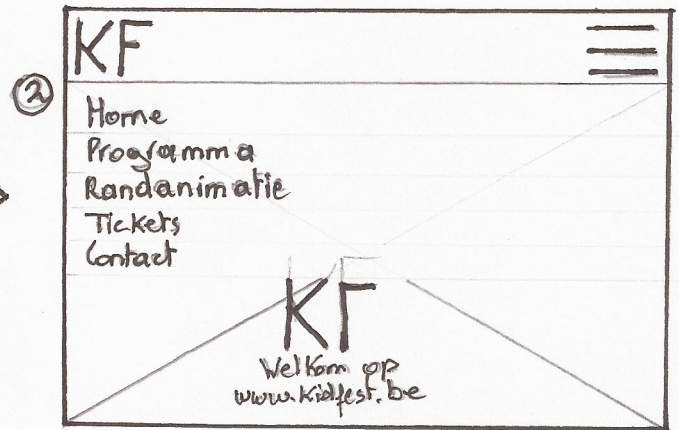 KF
2
Home
Programma
Randanimatie
Tickets
Contact
KF
Welkom op
www.kidfest.be